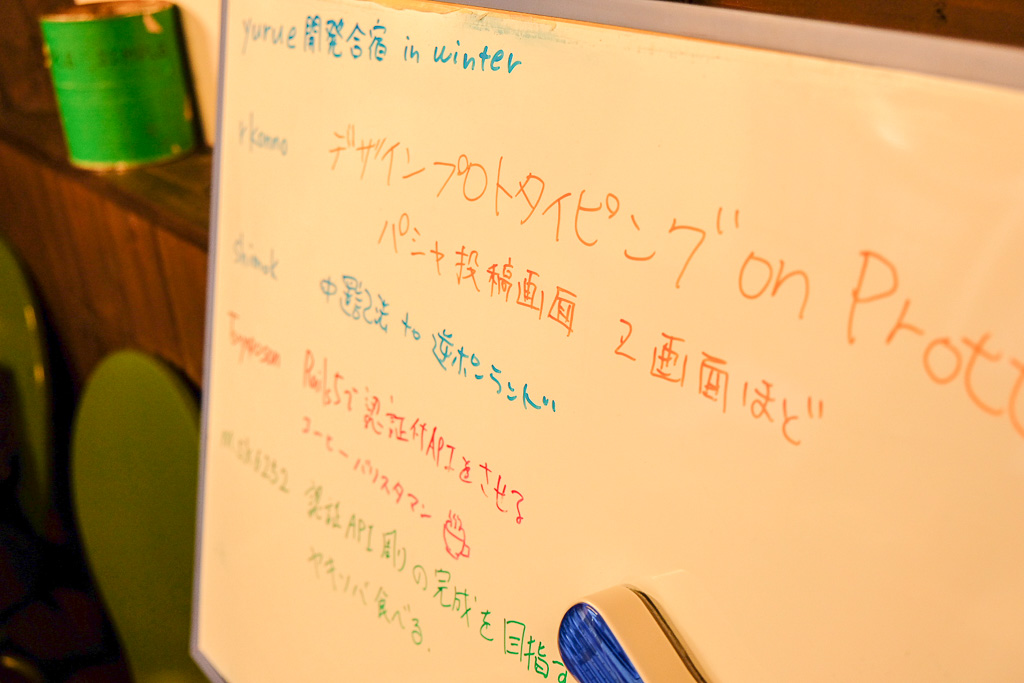 yurue 開発合宿 in winter
rkonno デザインプロトタイピング on Prott
パシャ投稿画面 2画面ほど
shimok 中置記法 to 逆ポーランド
Rails5で認証付APIをさせる
コーヒーバリスタマン
認証API周りの完成を目指す
ヤキソバ食べる.